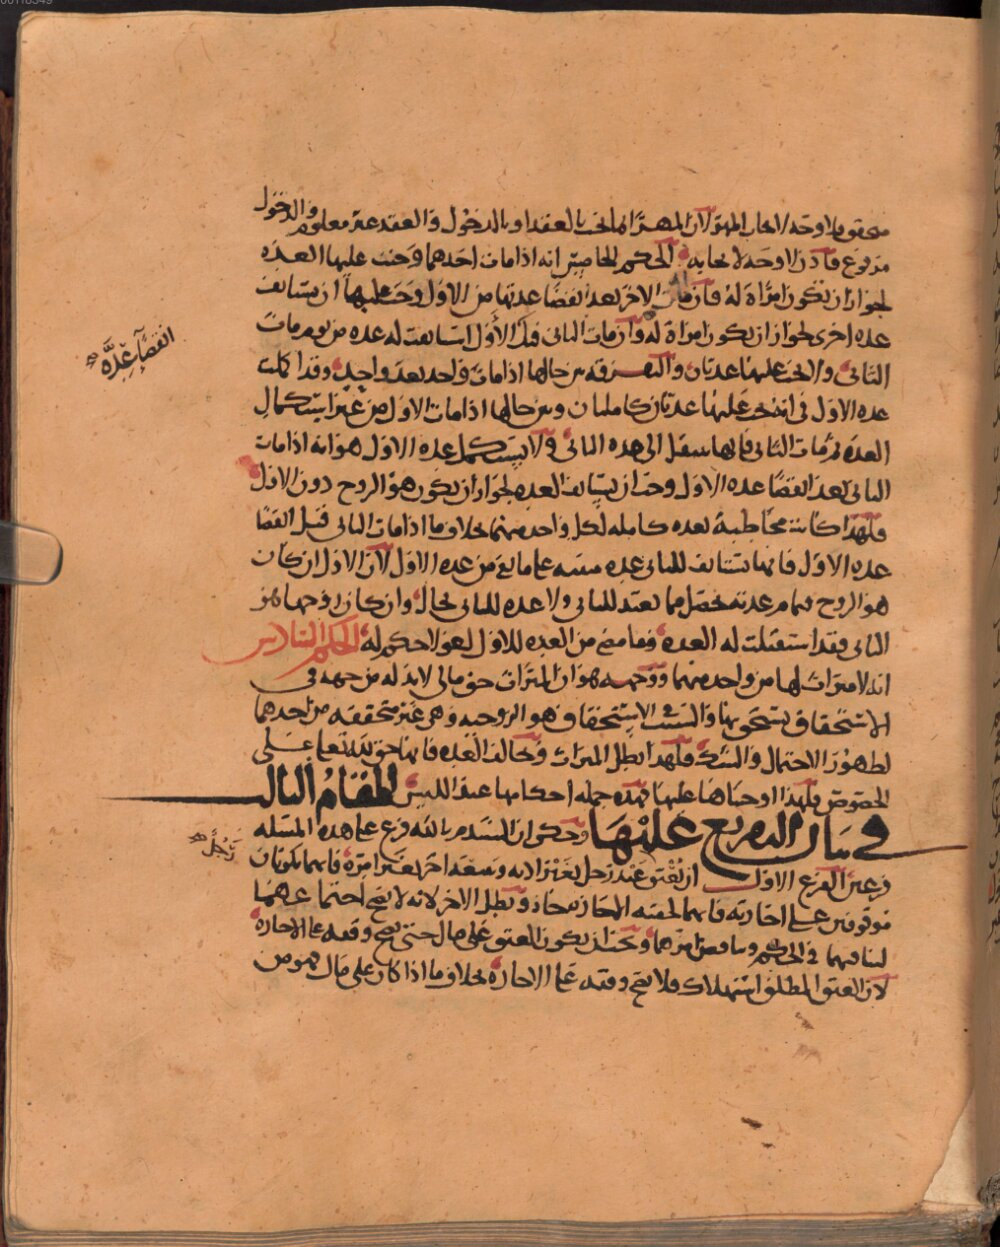 00118349
متحقق فلا وجه لايجاب المهر لان المهر انما يجب بالعقد او بالدخول والعقد غير معلوم والدخول
مرفوع فاذن لا وجه لايجابه الحكم الخامس انه اذا مات احدهما وجبت عليها العده
لجواز ان يكون امرأة له فان مات الاخر بعد انقضا عدتها من الاول وجب عليها ان تستانف
عده اخرى لجواز ان يكون امراة له وان مات الثاني قبل الأول استانفت له عده من يوم مات
الثاني والتجب عليها عدتان والتفرقه من حالها اذا مات واحد بعد واحد وقد اكملت
عده الاول في انه يجب عليها عدتان كاملتان ومن حالها اذا مات الاول من غير استكمال
العده ثم مات الثاني فانها تنتقل الى هذه الثاني ولا تستكمل عده الاول هو انه اذا مات
الثاني بعد انقضا عده الاول وجب ان تستانف العده لجواز ان يكون هو الزوج دون الاول
فلهذا كانت مخاطبة بعده كامله لكل واحد منهما بخلاف ما اذا مات الثاني قبل انقضا
عده الاول فانها تستانف للثاني عده مبنيه على ما بقي من عده الاول لان الاول ان كان
هو الزوج فما مر عدته فحصل مما تعتد للثاني ولا عده للثاني بحال وان كان زوجها هو
الثاني فقد استقبلت له العده وما مضى من العده للاول لغو لا حكم له الحكم السادس
انه لا ميراث لها من واحد منهما ووجهه هو ان الميراث حق مالي لا بد له من جهه في
الاستحقاق يستحق بها والسبب في الاستحقاق هو الزوجيه وهي غير متحققه من احدهما
لظهور الاحتمال والشك فلهذا بطل الميراث وخالف العده فانها حق لله تعالى على
الخصوص فلهذا اوجبناها عليها فهذه جمله احكامها عند اللبس المقام الثالث
في بيان التفريع عليها وحكي ان السيد م بالله فرع على هذه المسئله
فرعين الفرع الاول ان يعتق عبد رجل بغير اذنه ويبيعه اخر بغير امره فانهما يكونان
موقوفين على اجازته فايهما لحقته الاجازه جاز وبطل الاخر لانه لا يصح اجتماعهما
لتنافيهما في الحكم وتناقض امرهما وحينئذ يكون العتق على مال حتى يصح وقفه على الاجازه
لان العتق المطلق استهلاك فلا يصح وقفه على الاجازه بخلاف ما اذا كان على مال فهو من
انقضآء عدة
رجل